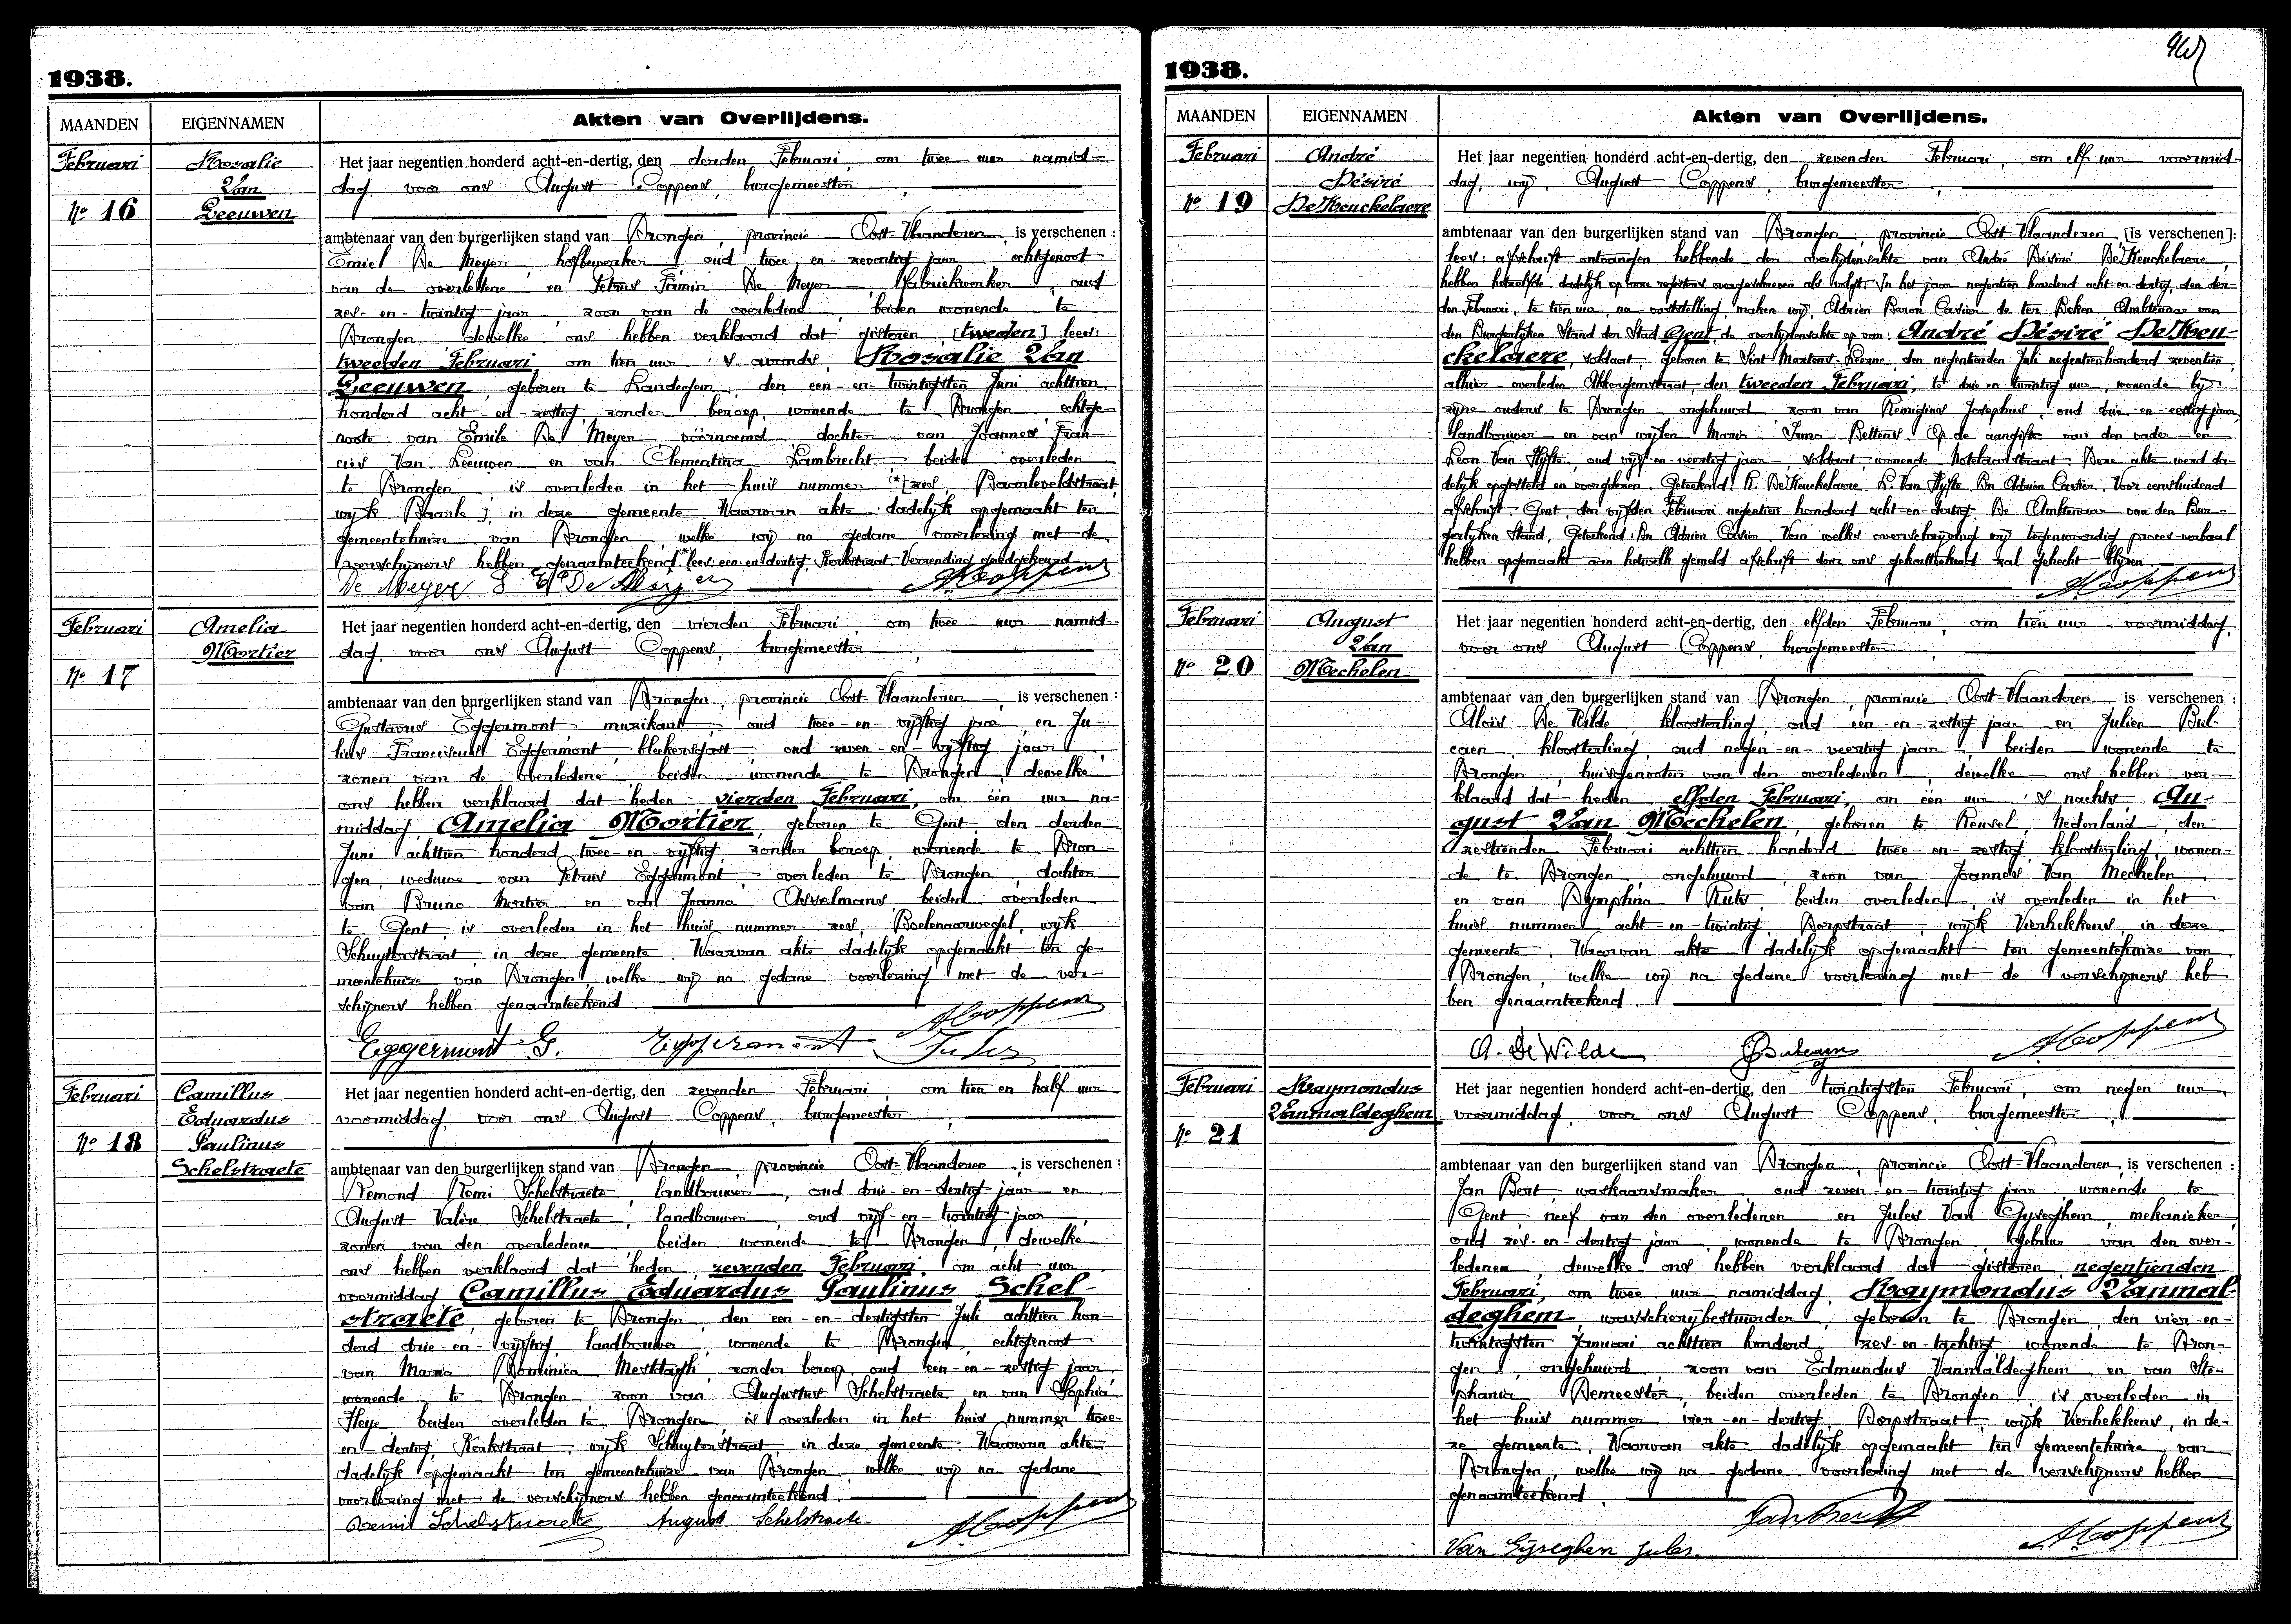 1938.
MAANDEN EIGENNAMEN Akten van Overlijdens.
Februari
Nº 16
Rosalie
Van
Leeuwen
Het jaar negentien honderd acht-en-dertig, den derden Februari, om twee uur namid-
dag, voor ons August Coppens, burgemeester,
ambtenaar van den burgerlijken stand van Drongen, provincie Oost-Vlaanderen, is verschenen :
Emiel De Meyer, hofbewerker, oud twee-en-zeventig jaar, echtgenoot
van de overledene en Petrus Firmin De Meyer, fabriekwerker, oud
zes-en-twintig jaar, zoon van de overledene, beiden wonende te
Drongen, dewelke ons hebben verklaard dat gisteren [tweden] lees:
tweeden Februari, om tien uur 's avonds, Rosalie Van
Leeuwen, geboren te Landegem, den een-en-twintigsten Juni achttien
honderd acht-en-zestig, zonder beroep, wonende te Drongen, echtge-
noote van Emile De Meyer, voornoemd, dochter van Joannes Fran-
cies Van Leeuwen en van Clementina Lambrecht, beiden overleden
te Drongen, is overleden in het huis nummer (*)[zes, Baarleveldstraat,
wijk Baarle], in deze gemeente. Waarvan akte dadelijk opgemaakt ten
gemeentehuize van Drongen, welke wij na gedane voorlezing met de
verschijners hebben genaamteekend. (*) lees: een-en-dertig, Kerkstraat. Verzending goedgekeurd.
De Meyer E De Meyer A. Coppens
Februari
Nº 17
Amelia
Mortier
Het jaar negentien honderd acht-en-dertig, den vierden Februari, om twee uur namid-
dag, voor ons August Coppens, burgemeester,
ambtenaar van den burgerlijken stand van Drongen, provincie Oost-Vlaanderen, is verschenen :
Gustavus Eggermont, muzikant, oud twee-en-vijftig jaar en Ju-
lius Franciscus Eggermont, bleekersgast, oud zeven-en-vijftig jaar,
zonen van de overledene, beiden wonende te Drongen, dewelke
ons hebben verklaard dat heden vierden Februari, om één uur na-
middag, Amelia Mortier, geboren te Gent, den derden
Juni achttien honderd twee-en-vijftig, zonder beroep, wonende te Dron-
gen, weduwe van Petrus Eggermont, overleden te Drongen, dochter
van Bruno Mortier en van Joanna Asselmans, beiden overleden
te Gent, is overleden in het huis nummer zes, Boelenaarwegel, wijk
Schuyterstraat, in deze gemeente. Waarvan akte dadelijk opgemaakt ten ge-
meentehuize van Drongen, welke wij na gedane voorlezing met de ver-
schijners hebben genaamteekend.
Eggermont G. Eggermont Jules A. Coppens
Februari
Nº 18
Camillus
Eduardus
Paulinus
Schelstraete
Het jaar negentien honderd acht-en-dertig, den zevenden Februari, om tien en half uur
voormiddag, voor ons August Coppens, burgemeester,
ambtenaar van den burgerlijken stand van Drongen, provincie Oost-Vlaanderen, is verschenen :
Remond Remi Schelstraete, landbouwer, oud drie-en-dertig jaar en
August Valère Schelstraete, landbouwer, oud vijf-en-twintig jaar,
zonen van den overledenen, beiden wonende te Drongen, dewelke
ons hebben verklaard dat heden, zevenden Februari, om acht uur
voormiddag Camillus Eduardus Paulinus Schel-
straete, geboren te Drongen, den een-en-dertigsten Juli achttien hon-
derd drie-en-vijftig, landbouwer, wonende te Drongen, echtgenoot
van Maria Dominica Mestdagh, zonder beroep, oud een-en-zestig jaar,
wonende te Drongen, zoon van Augustus Schelstraete en van Sophia
Heye, beiden overleden te Drongen, is overleden in het huis nummer twee-
en-dertig, Kerkstraat, wijk Schuyterstraat, in deze gemeente. Waarvan akte
dadelijk opgemaakt ten gemeentehuize van Drongen, welke wij na gedane
voorlezing met de verschijners hebben genaamteekend.
Remi Schelstraete August Schelstraete A. Coppens
1938.
MAANDEN EIGENNAMEN Akten van Overlijdens.
Februari
Nº 19
André
Désiré
De Keuckelaere
Het jaar negentien honderd acht-en-dertig, den zevenden Februari, om elf uur voormid-
dag, wij, August Coppens, burgemeester,
ambtenaar van den burgerlijken stand van Drongen, provincie Oost-Vlaanderen, [is verschenen]:
lees: afschrift ontvangen hebbende der overlijdensakte van André Désiré De Keuckelaere,
hebben hetzelfde dadelijk op onze registers overgeschreven als volgt: In het jaar negentien honderd acht-en-dertig, den der-
den Februari, te tien ure, na vaststelling, maken wij, Adrien Baron Cavier de ter Beken, Ambtenaar van
den Burgerlijken Stand der Stad Gent, de overlijdensakte op van: André Désiré De Keu-
ckelaere, soldaat, geboren te Sint Martens-Leerne, den negentienden Juli negentienhonderd zeventien,
alhier overleden Ekkergemstraat, den tweeden Februari, te drie-en-twintig uur, wonende bij
zijne ouders te Drongen, ongehuwd, zoon van Remigius Josephus, oud drie-en-zestig jaar,
landbouwer en van wijlen Maria Irma Bettens. Op de aangifte van den vader en
Leon Van Hyfte, oud vijf-en-veertig jaar, soldaat, wonende Notelaarstraat. Deze akte werd da-
delijk opgesteld en voorgelezen. Geteekend: R. De Keuckelaere. L. Van Hyfte. Bon Adrien Cavier. Voor eensluidend
afschrift. Gent, den vijfden Februari negentien honderd acht-en-dertig. De Ambtenaar van den Bur-
gerlijken Stand, Geteekend: Bon Adrien Cavier. Van welke overschrijving wij tegenwoordig proces-verbaal
hebben opgemaakt aan hetwelk gemeld afschrift door ons gekanttekend zal gehecht blijven.
A. Coppens
Februari
Nº 20
August
Van
Mechelen
Het jaar negentien honderd acht-en-dertig, den elfden Februari, om tien uur voormiddag,
voor ons August Coppens, burgemeester,
ambtenaar van den burgerlijken stand van Drongen, provincie Oost-Vlaanderen, is verschenen :
Aloïs De Wilde, kloosterling, oud een-en-zestig jaar en Julien Bul-
caen, kloosterling, oud negen-en-veertig jaar, beiden wonende te
Drongen, huisgenooten van den overledenen, dewelke ons hebben ver-
klaard dat heden elfden Februari, om één uur 's nachts, Au-
gust Van Mechelen, geboren te Reusel, Nederland, den
zestienden Februari achttien honderd twee-en-zestig, kloosterling, wonen-
de te Drongen, ongehuwd, zoon van Joannes Van Mechelen
en van Nymphina Ruts, beiden overleden, is overleden in het
huis nummer acht-en-twintig, Dorpstraat, wijk Vierhekkens, in deze
gemeente. Waarvan akte dadelijk opgemaakt ten gemeentehuize van
Drongen, welke wij na gedane voorlezing met de verschijners heb-
ben genaamteekend.
A. De Wilde J. Bulcaen A. Coppens
Februari
Nº 21
Raymondus
Vanmaldeghem
Het jaar negentien honderd acht-en-dertig, den twintigsten Februari, om negen uur
voormiddag, voor ons August Coppens, burgemeester,
ambtenaar van den burgerlijken stand van Drongen, provincie Oost-Vlaanderen, is verschenen :
Jan Bert, waskaarsmaker, oud zeven-en-twintig jaar, wonende te
Gent, neef van den overledenen en Jules Van Gyseghem, mekanieker,
oud zes-en-dertig jaar, wonende te Drongen, gebuur van den over-
ledenen, dewelke ons hebben verklaard dat gisteren negentienden
Februari, om twee uur namiddag, Raymondus Vanmal-
deghem, wasscherijbestuurder, geboren te Drongen, den vier-en-
twintigsten Januari achttien honderd zes-en-tachtig, wonende te Dron-
gen, ongehuwd, zoon van Edmundus Vanmaldeghem en van Ste-
phania Demeester, beiden overleden te Drongen, is overleden in
het huis nummer vier-en-dertig, Dorpstraat, wijk Vierhekkens, in de-
ze gemeente. Waarvan akte dadelijk opgemaakt ten gemeentehuize van
Drongen, welke wij na gedane voorlezing met de verschijners hebben
genaamteekend.
Van Gijseghem Jules. A. Coppens